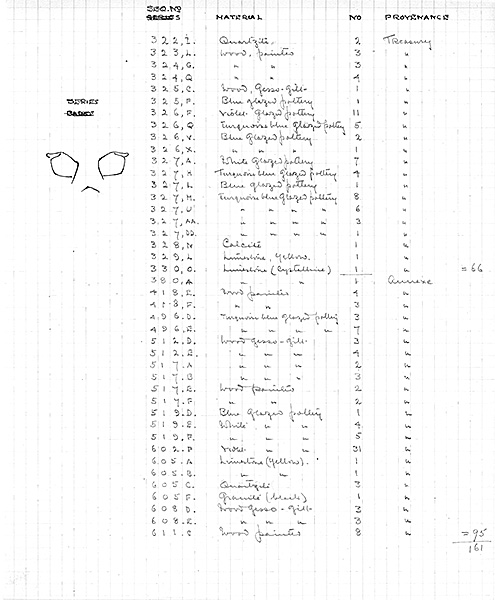 SEQ. No MATERIAL No PROVENANCE
SERIES
322, I. Quartzite. 2 Treasury
323, L. Wood, painted 3 "
324, G. " " 3 "
324, Q " " 4 "
325, C. Wood, Gesso-gilt 1 "
325, P. Blue glazed pottery 1 "
SERIES
326, F. Violet glazed pottery 11 "
BASES
326, Q Turquoise blue glazed pottery 5 "
326, V. Blue Glazed pottery 2 "
326, X. " " " 1 "
327, A. White Glazed pottery 7 "
327, H Turquoise blue glazed pottery 4 "
327, L Blue glazed pottery 1 "
327, M. Turquoise blue Glazed pottery 8 "
327, U " " " " 6 "
327, AA. " " " " 3 "
327, DD. " " " " 1 "
328, N Calcite 1 "
329, L Limestone, yellow. 1 "
330, O. Limestone (Crystalline) 1 " = 66
380, A " " 1 Annexe
418, E. Wood painted 4 "
418, F. " " 3 "
496, D. Turquoise blue glazed pottery 3 "
496, E. " " " " 7 "
512, D. Wood Gesso-gilt 3 "
512, E. " " " 4 "
517, A " " " 2 "
517, B " " " 3 "
517, E. Wood painted 2 "
517, F. " " 2 "
519, D. Blue Glazed pottery 1 "
519, E. White " " 4 "
519, F. " " " 5 "
602, P Violet " " 31 "
605, A Limestone (yellow). 1 "
605, B. " " 1 "
605, C. Quartzite 3 "
605, F. Granite (black) 1 "
608, D. Wood Gesso-gilt 3 "
608, E. " " " 3 "
611, C Wood painted 8 " = 95
161